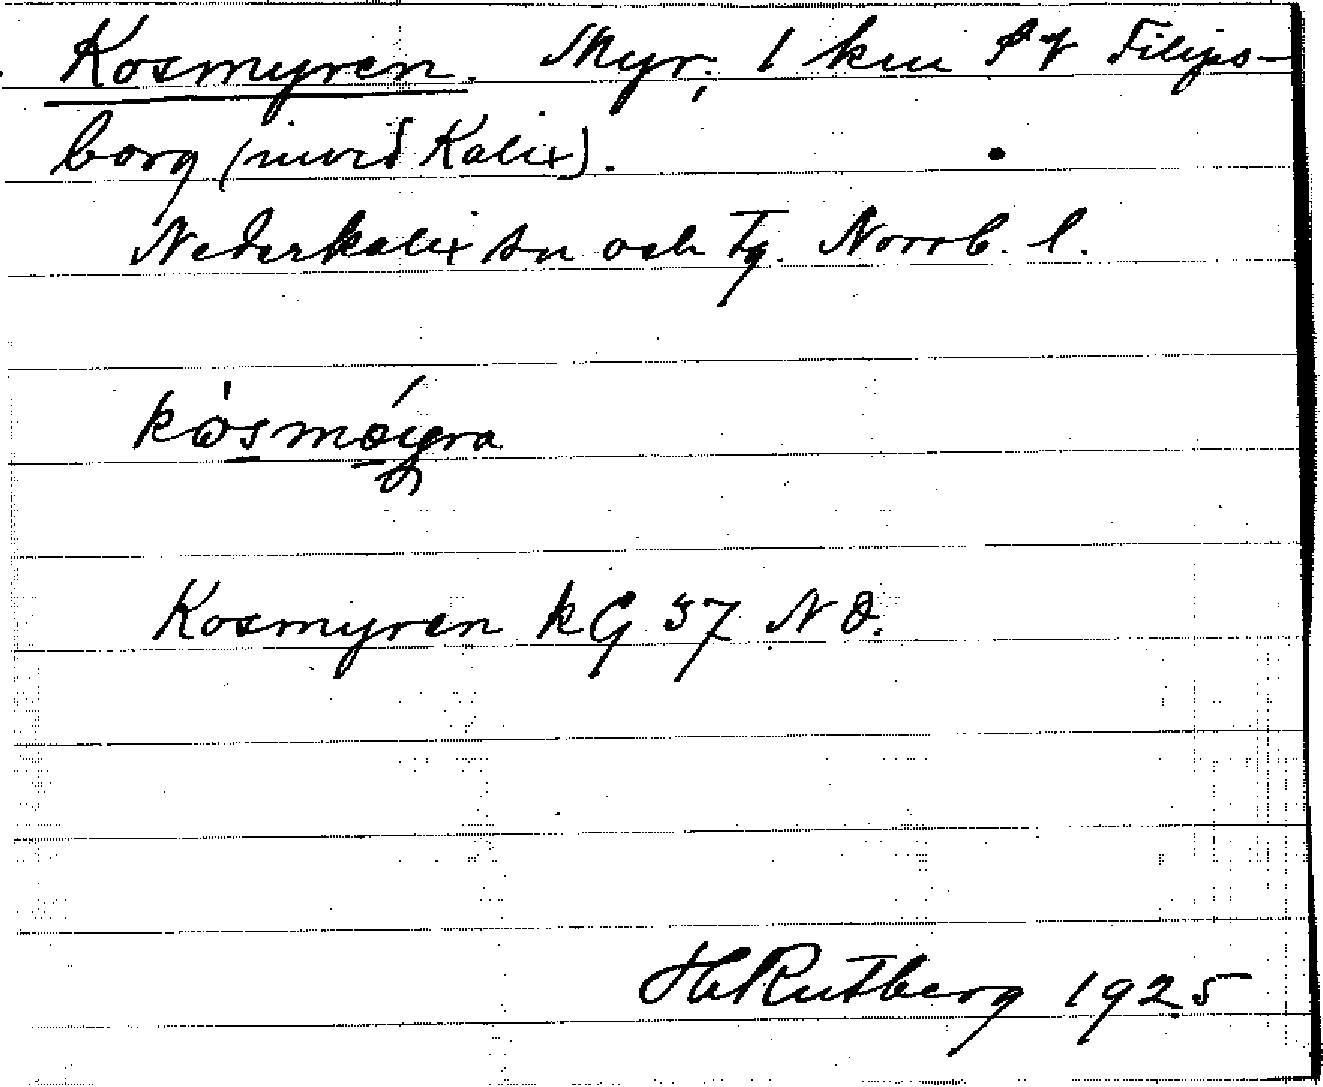 Kosmyren. Myr, 1 km S f Filips-
borg (invid Kalix).
Nederkalix sn och Tg. Norrb. l.
Kosmyren kG 37 NO.
H Rutberg 1925